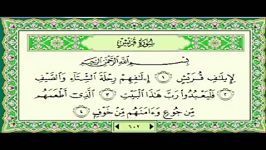 سُورَةُ قُرَيْشٍ
بِسْمِ اللَّهِ الرَّحْمَٰنِ الرَّحِيمِ
لِإِيلَٰفِ قُرَيْشٍ ١ إِۦلَٰفِهِمْ رِحْلَةَ الشِّتَآءِ وَالصَّيْفِ
٢ فَلْيَعْبُدُوا۟ رَبَّ هَٰذَا الْبَيْتِ ٣ الَّذِىٓ أَطْعَمَهُم
مِّن جُوعٍ وَءَامَنَهُم مِّنْ خَوْفٍ ٤
١٠٦